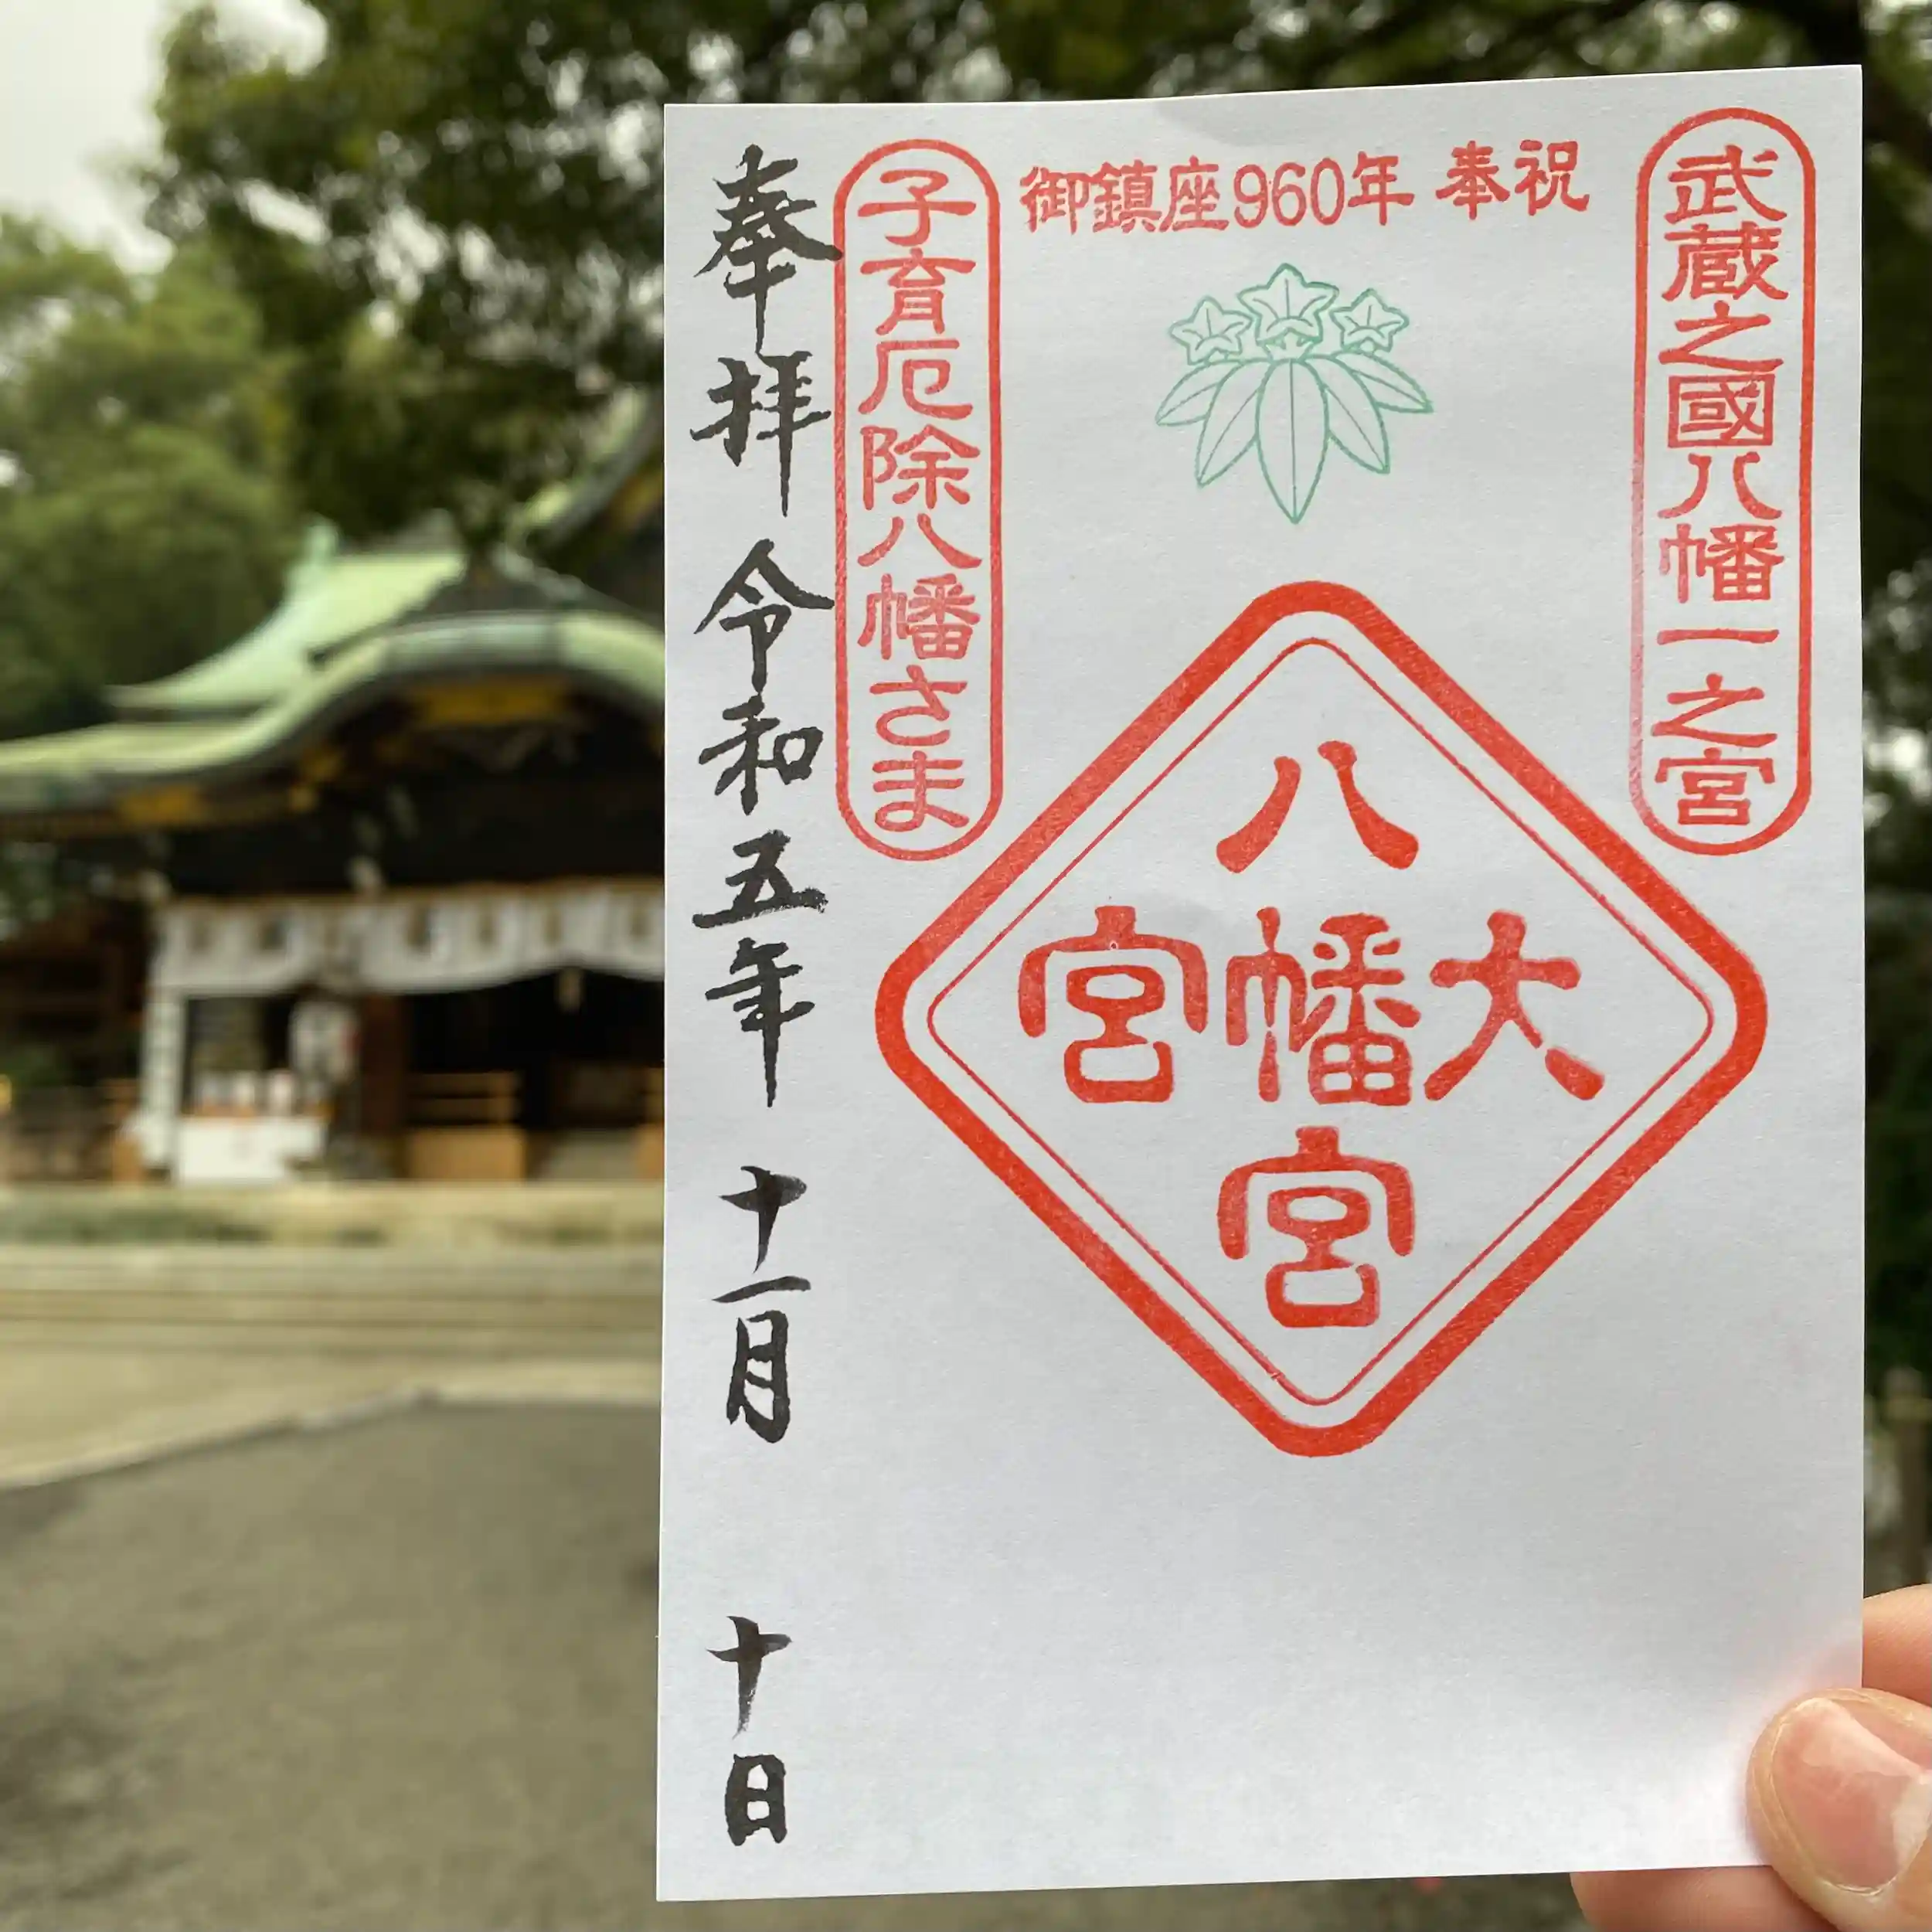 武蔵之國八幡一之宮
御鎮座960年 奉祝
八幡宮
大
宮
子育厄除八幡さま
奉拝 令和五年 十一月 十日